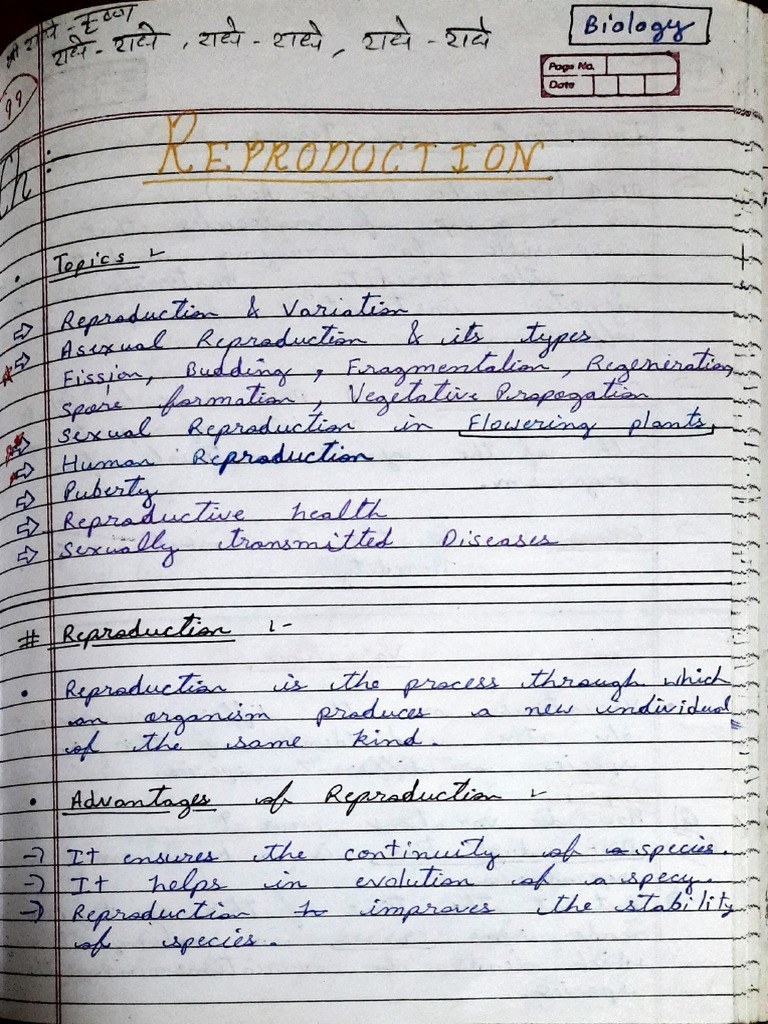 श्री राधे - कृष्ण
राधे - राधे , राधे - राधे , राधे - राधे
Biology
Page No.
Date
Ch :
REPRODUCTION
• Topics :-
⇨ Reproduction & Variation
⇨ Asexual Reproduction & its types
Fission, Budding , Fragmentation , Regeneration,
spore formation , Vegetative Propogation
⇨ Sexual Reproduction in Flowering plants,
⇨ Human Reproduction
⇨ Puberty
⇨ Reproductive health
⇨ Sexually transmitted Diseases
# Reproduction :-
• Reproduction is the process through which
an organism produces a new individual
of the same kind.
• Advantages of Reproduction :-
→ It ensures the continuity of a species.
→ It helps in evolution of a specy.
→ Reproduction improves the stability
of species.